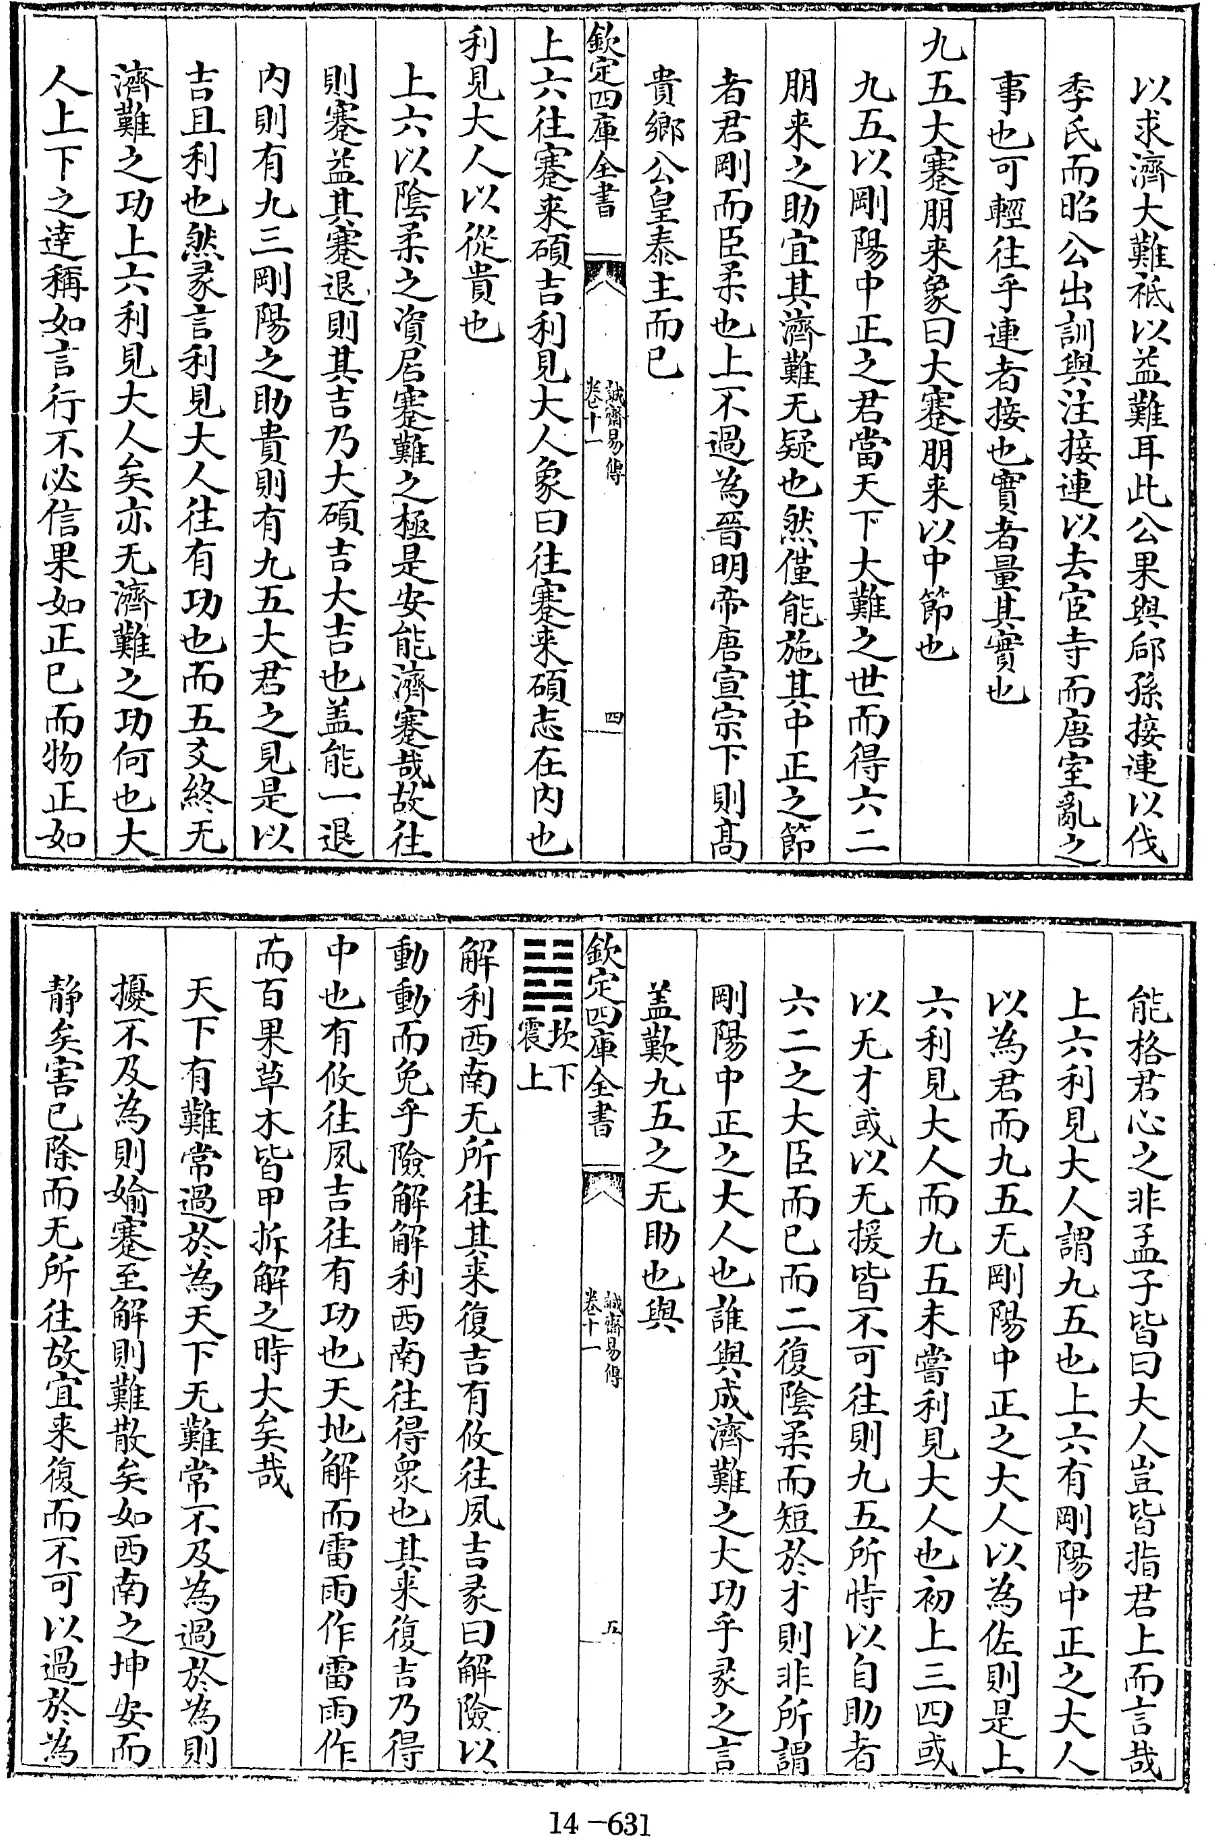 以求濟大難祗以益難耳此公果與郈孫接連以伐
季氏而昭公出訓與注接連以去宦寺而唐室亂之
事也可輕往乎連者接也實者量其實也
九五大蹇朋来象曰大蹇朋来以中節也
九五以剛陽中正之君當天下大難之世而得六二
朋来之助宜其濟難无疑也然僅能施其中正之節
者君剛而臣柔也上不過為晉明帝唐宣宗下則髙
貴鄉公皇泰主而已
欽定四庫全書
誠齋易傳
卷十一
四
上六往蹇来碩吉利見大人象曰往蹇来碩志在内也
利見大人以從貴也
上六以陰柔之資居蹇難之極是安能濟蹇哉故往
則蹇益其蹇退則其吉乃大碩吉大吉也盖能一退
内則有九三剛陽之助貴則有九五大君之見是以
吉且利也然彖言利見大人往有功也而五爻終无
濟難之功上六利見大人矣亦无濟難之功何也大
人上下之達稱如言行不必信果如正已而物正如
能格君心之非孟子皆曰大人豈皆指君上而言哉
上六利見大人謂九五也上六有剛陽中正之大人
以為君而九五无剛陽中正之大人以為佐則是上
六利見大人而九五未嘗利見大人也初上三四或
以无才或以无援皆不可往則九五所恃以自助者
六二之大臣而已而二復陰柔而短於才則非所謂
剛陽中正之大人也誰與成濟難之大功乎彖之言
盖歎九五之无助也與
欽定四庫全書
誠齋易傳
卷十一
五
䷧坎下
震上
解利西南无所往其来復吉有攸往夙吉彖曰解險以
動動而免乎險解解利西南往得衆也其来復吉乃得
中也有攸往夙吉往有功也天地解而雷雨作雷雨作
而百果草木皆甲拆解之時大矣哉
天下有難常過於為天下无難常不及為過於為則
擾不及為則媮蹇至解則難散矣如西南之坤安而
静矣害已除而无所往故宜来復而不可以過於為
14-631